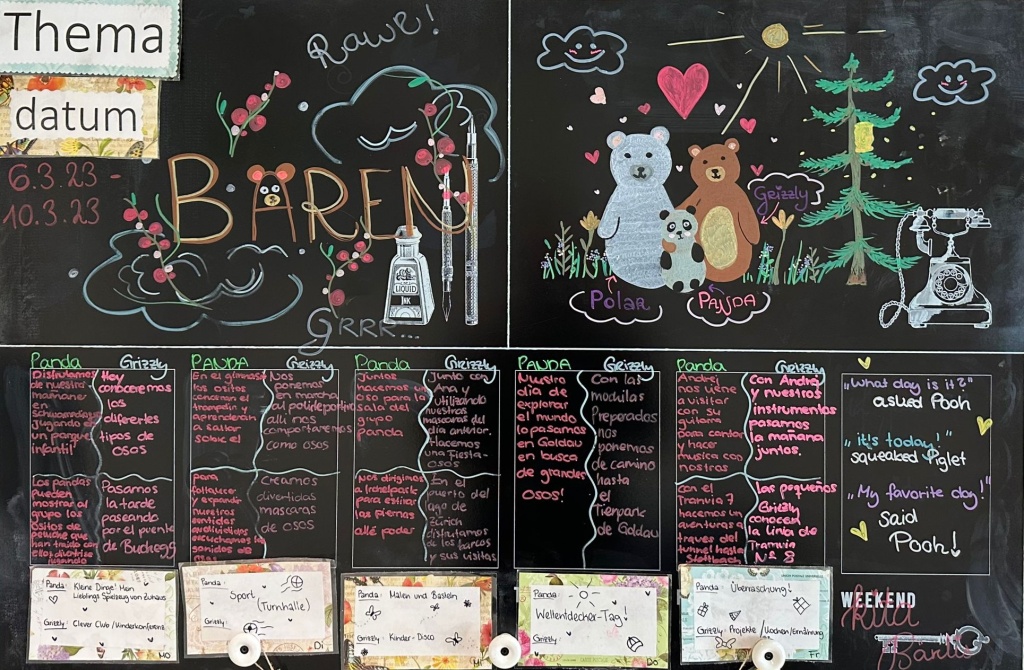 Thema
datum
6.3.23 -
10.3.23
Rawr!
BÄREN
LIQUID
INK
GRRR...
Grizzly
Polar
PANDA
Panda
Grizzly
Disfrutamos
de nuestra
mañana
en
jugando en
un parque
infantil
Hoy
conoceremos
los
diferentes
tipos de
osos
Los pandas
pueden
mostrar al
grupo los
ositos de
peluche que
han traido con
ellos divertirse
jugando
Pasamos
la tarde
paseando
por el puente
de Buchegg
PANDA
Grizzly
En el gimnasio
los ositos
conoceran el
trampolin y
aprenderán
a saltar
sobre el
Nos
ponemos
en marcha
al polideportivo
alli nos
comportaremos
como osos
para
fortalecer
y expandir
nuestros
sentidos
auditivos
escuchamos los
sonidos de
osos
Creamos
divertidas
mascaras
de osos
Panda
Grizzly
Juntos
hacemos un
oso para la
sala del
grupo
panda
Junto con
Ana y
utilizando
nuestras
mascaras del
día anterior.
Hacemos
una fiesta-
osos
Nos dirigimos
a
para estirar
las piernas
allé poder
En el
puerto del
lago de
Zürich
disfrutamos
de los barcos
y sus visitas
PANDA
Grizzly
Nuestro
dia de
explorar
el mundo
lo pasamos
en Goldau
en busca
de grandes
osos!
Con las
mochilas
Preparados
nos
ponemos
de camino
hasta
el
Tierpark
de Goldau
Panda
Grizzly
Andrej
nos viene
a visitar
con su
guitarra
para cantar
y hacer
musica con
nostros
Con André
y nuestros
instrumentos
pasamos
la mañana
juntos.
con el
Tramvia 7
hacemos un
aventuras a
traves del
tunnel hasta
Stettbach
los pequeños
Grizzly
conocen
la linea de
Tramvia
N° 8
„What day is it?"
asked Pooh
„it's today!"
squeaked Piglet
„My favorite day!"
said
Pooh!
Panda: Kleine Dinge! Mein
Lieblings Spielzeug von zuhaus
Grizzly: Clever Club / Kinderkonferenz
MO
Panda:
Sport
(Turnhalle)
Grizzly:
Di
Panda: Malen und Basteln
Grizzly: Kinder-Disco
Mi
Panda:
Weltentdecker-Tag!
Grizzly:
Do
Panda: Überraschung!
Grizzly: Projekte / Kochen/Ernährung
Fr
WEEKEND
kita